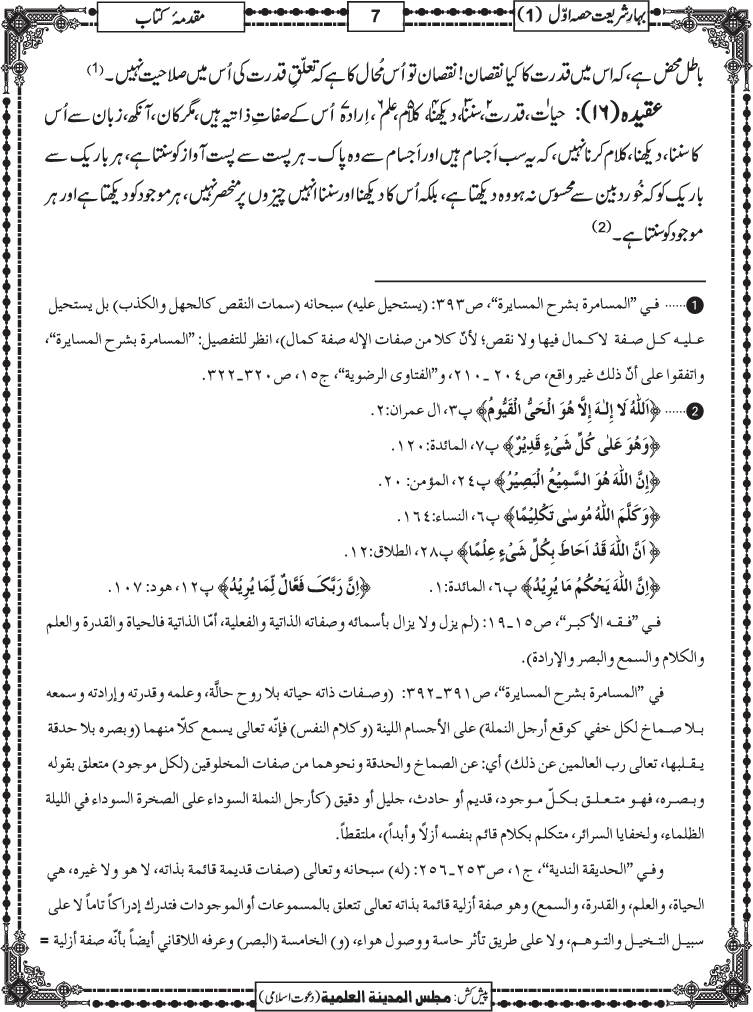 بہارِشریعت حصہ اوّل (1)
7
مقدمۂ کتاب
باطل محض ہے، کہ اس میں قدرت کا کیا نقصان! نقصان تو اُس مُحال کا ہے کہ تعلّقِ قدرت کی اُس میں صلاحیت نہیں۔ (1)
عقیدہ (۱۶): حیات۱، قدرت۲، سننا۳، دیکھنا۴، کلام۵، علم۶، اِرادہ۷ اُس کے صفاتِ ذاتیہ ہیں، مگر کان، آنکھ، زبان سے اُس
کا سننا، دیکھنا، کلام کرنا نہیں، کہ یہ سب اَجسام ہیں اور اَجسام سے وہ پاک۔ ہر پست سے پست آواز کو سنتا ہے، ہر باریک سے
باریک کو کہ خُوردبین سے محسوس نہ ہو وہ دیکھتا ہے، بلکہ اُس کا دیکھنا اور سننا انہیں چیزوں پر منحصر نہیں، ہر موجود کو دیکھتا ہے اور ہر
موجود کو سنتا ہے۔ (2)
1 ...... فـي ”المسامرة بشرح المسايرة“، ص٣٩٣: (يستحيل عليه) سبحانه (سمات النقص كالجهل والكذب) بل يستحيل
عليـه كـل صفـة لاكـمال فيها ولا نقص؛ لأنّ كلا من صفات الإله صفة كمال)، انظر للتفصيل: ”المسامرة بشرح المسايرة“،
واتفقوا على أنّ ذلك غير واقع، ص٢٠٤ ـ ٢١٠، و”الفتاوى الرضوية“، ج١٥، ص٣٢٠ـ٣٢٢.
2 ...... ﴿اَللّٰهُ لَا إِلٰـهَ إِلَّا هُوَ الْحَيُّ الْقَيُّومُ﴾ پ٣، ال عمران:٢.
﴿وَهُوَ عَلٰى كُلِّ شَيْءٍ قَدِيْرٌ﴾ پ٧، المائدة:١٢٠.
﴿إِنَّ اللّٰهَ هُوَ السَّمِيْعُ الْبَصِيْرُ﴾ پ٢٤، المؤمن: ٢٠.
﴿وَكَلَّمَ اللّٰهُ مُوسٰى تَكْلِيْمًا﴾ پ٦، النساء:١٦٤.
﴿ اَنَّ اللّٰهَ قَدْ اَحَاطَ بِكُلِّ شَيْءٍ عِلْمًا﴾ پ٢٨، الطلاق:١٢.
﴿إِنَّ اللّٰهَ يَحْكُمُ مَا يُرِيْدُ﴾ پ٦، المائدة:١. ﴿إِنَّ رَبَّكَ فَعَّالٌ لِّمَا يُرِيْدُ﴾ پ١٢، هود: ١٠٧.
فـي ”فـقـه الأكبـر“، ص١٥ـ١٩: (لم يزل ولا يزال بأسمائه وصفاته الذاتية والفعلية، أمّا الذاتية فالحياة والقدرة والعلم
والكلام والسمع والبصر والإرادة).
في ”المسامرة بشرح المسايرة“، ص٣٩١ـ٣٩٢: (وصفات ذاته حياته بلا روح حالَّة، وعلمه وقدرته وإرادته وسمعه
بـلا صـماخ لكل خفي كوقع أرجل النملة) على الأجسام اللينة (وكلام النفس) فإنّه تعالى يسمع كلّا منهما (وبصره بلا حدقة
يـقـلبها، تعالى رب العالمين عن ذلك) أي: عن الصماخ والحدقة ونحوهما من صفات المخلوقين (لكل موجود) متعلق بقوله
وبـصـره، فهـو متـعـلـق بـكـلّ مـوجود، قديم أو حادث، جليل أو دقيق (كأرجل النملة السوداء على الصخرة السوداء في الليلة
الظلماء، ولخفايا السرائر، متكلم بكلام قائم بنفسه أزلًا وأبداً)، ملتقطاً.
وفـي ”الحديقة الندية“، ج١، ص٢٥٣ـ٢٥٦: (له) سبحانه وتعالى (صفات قديمة قائمة بذاته، لا هو ولا غيره، هي
الحياة، والعلم، والقدرة، والسمع) وهو صفة أزلية قائمة بذاته تعالى تتعلق بالمسموعات أو الموجودات فتدرك إدراكاً تاماً لا على
سبيـل التـخيـل والتـوهـم، ولا على طريق تأثر حاسة ووصول هواء، (و) الخامسة (البصر) وعرفه اللاقاني أيضاً بأنّه صفة أزلية =
پیش کش: مجلس المدينة العلمية (دعوتِ اسلامی)